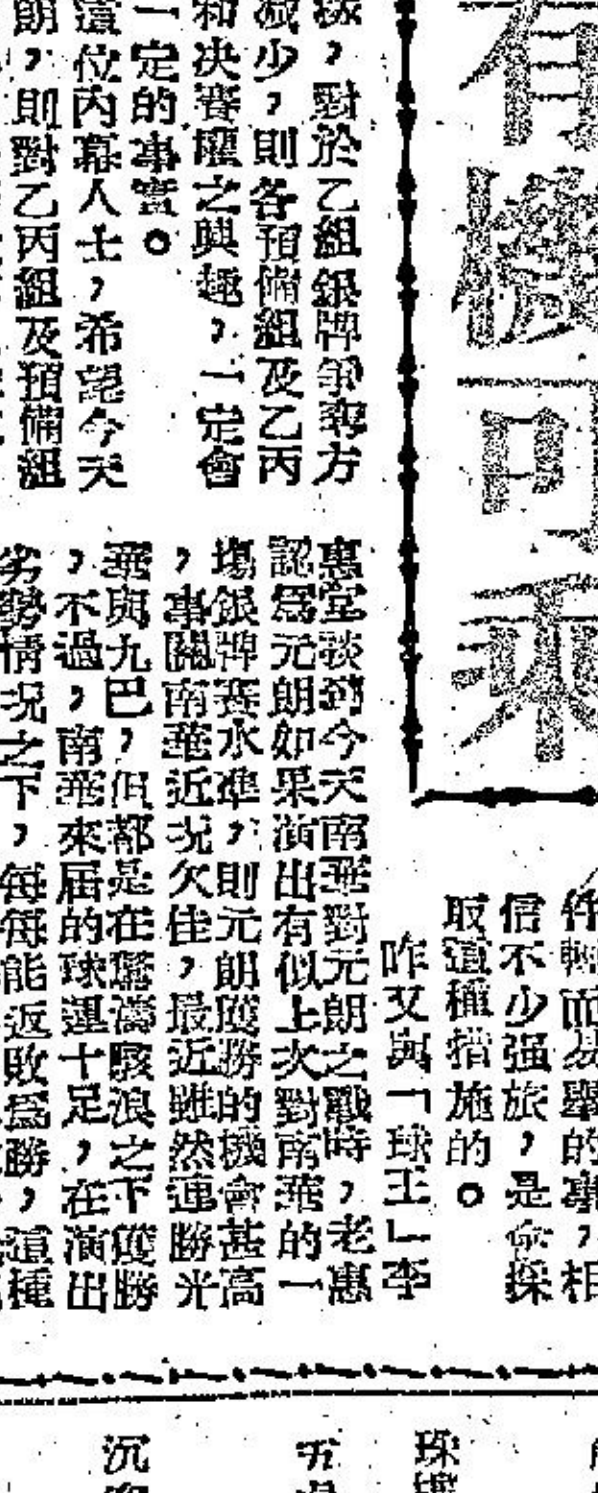 有機可乘
件輕而易舉的事，相
信不少强旅，是會採
取這種措施的。
昨又與「球王」李
惠堂談到今天南華對元朗之戰時，老惠
認爲元朗如果演出有似上次對南華的一
塲銀牌賽水準，則元朗獲勝的機會甚高
，事關南華近况欠佳，最近雖然連勝光
華與九巴，但都是在驚濤駭浪之下獲勝
，不過，南華來届的球運十足，在演出
劣勢情况之下，每每能返敗爲勝，這種
，對於乙組銀牌爭奪方
减少，則各預備組及乙丙
和决賽權之興趣，一定會
一定的事實。
這位內幕人士，希望今天
朗，則對乙丙組及預備組
沉
五
珠